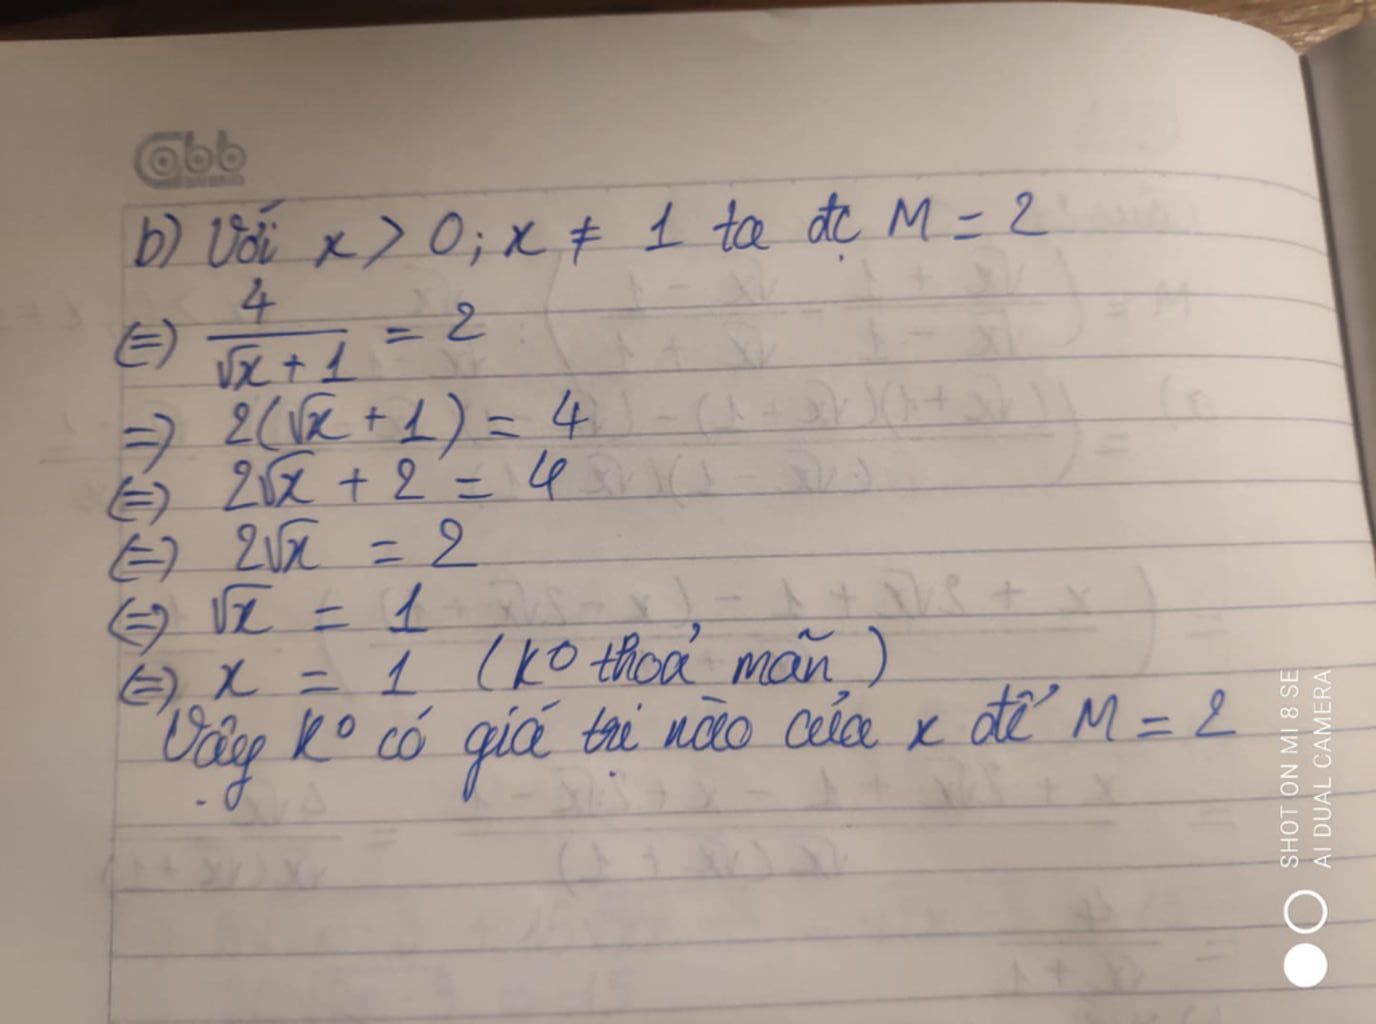 Cabb
b) Với x > 0; x ≠ 1 ta đc M = 2
(=) 4/(√x + 1) = 2
=) 2(√x + 1) = 4
(=) 2√x + 2 = 4
(=) 2√x = 2
(=) √x = 1
(=) x = 1 (K⁰ thoả mãn)
Vậy K⁰ có giá trị nào của x để M = 2
SHOT ON MI 8 SE
AI DUAL CAMERA